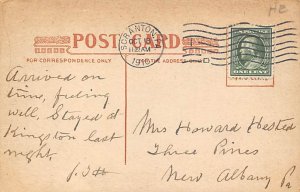 HE
POST CARD
FOR CORRESPONDENCE ONLY
THE ADDRESS ONLY
SCRANTON
11 AM
1910
Arrived on
time, feeling
well. Stayed at
Kingston last
night.
Mrs Howard Hested
Three Pines
New Albany Pa